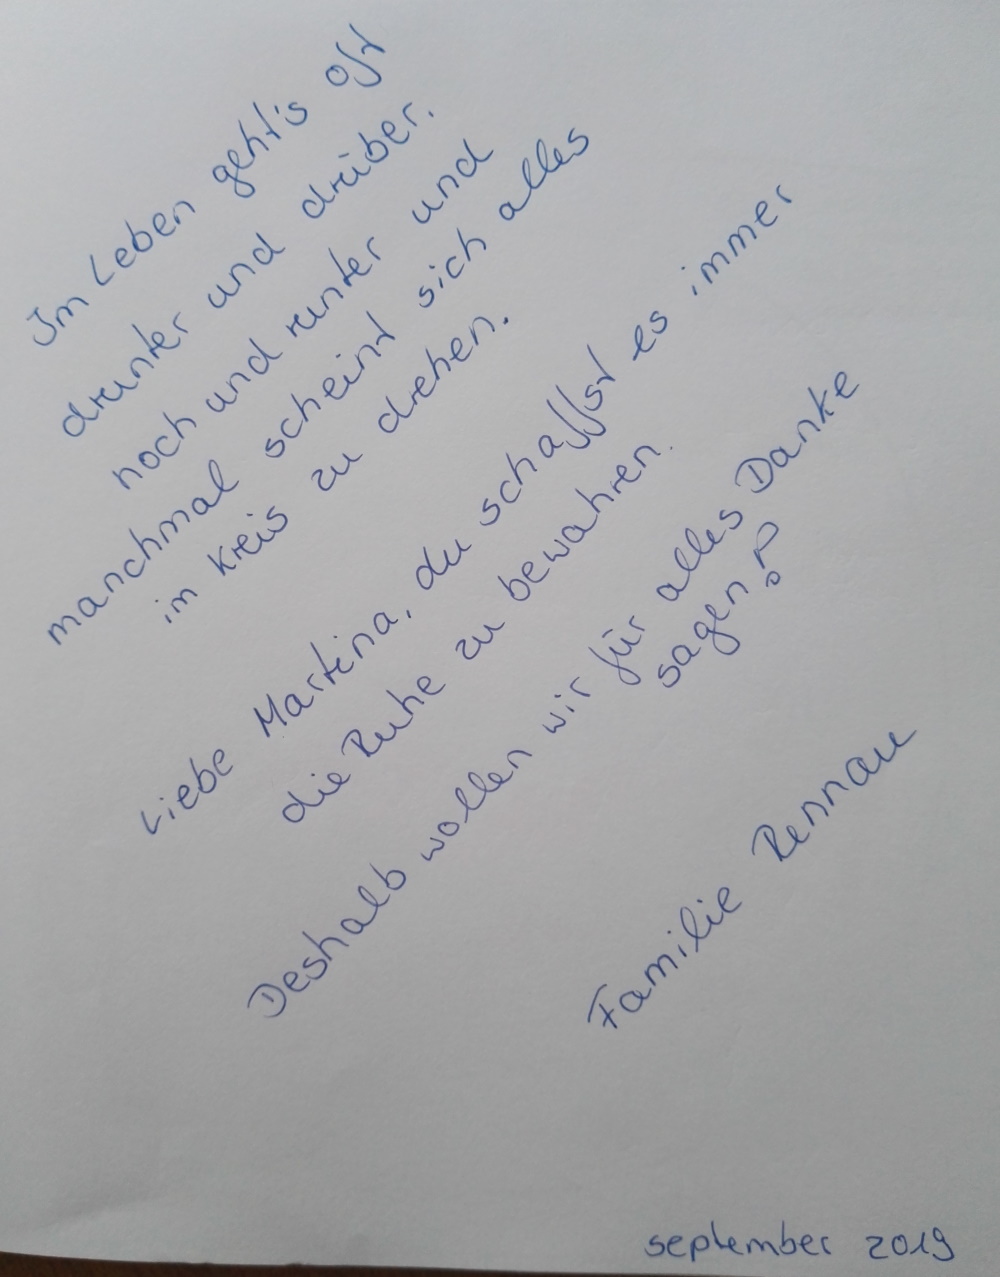 Im Leben geht's oft
drunter und drüber.
hoch und runter und
manchmal scheint sich alles
im Kreis zu drehen.
Liebe Martina, du schaffst es immer
die Ruhe zu bewahren.
Deshalb wollen wir für alles Danke
sagen!
Familie Rennau
september 2019